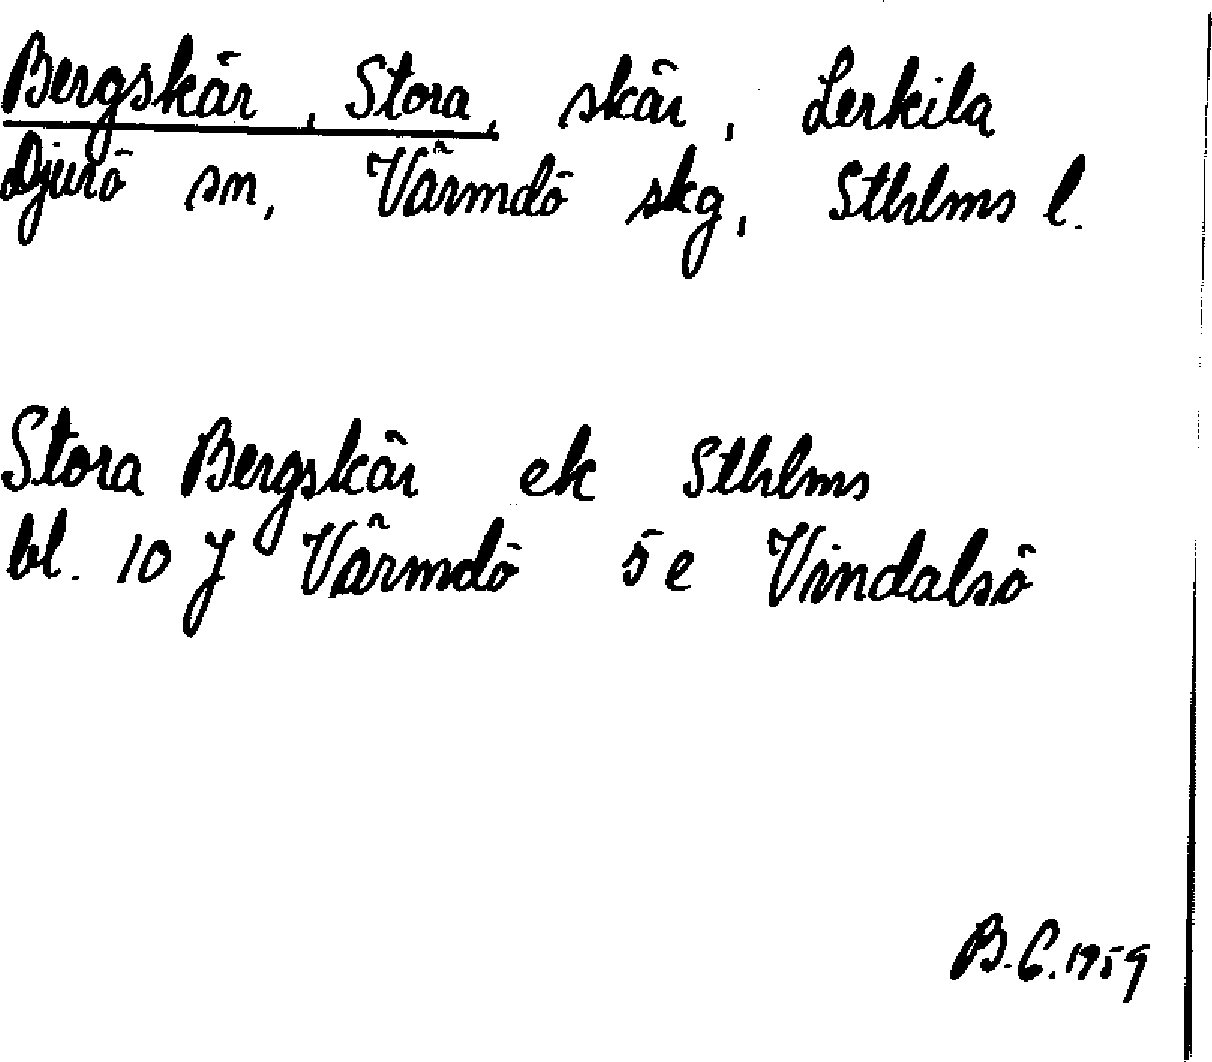 Bergskär, Stora, skär, Lerkila
Djurö sn, Värmdö skg, Sthlms l.
Stora Bergskär ek Sthlms
bl. 10 J Värmdö 5 e Vindalsö
B.C. 1959